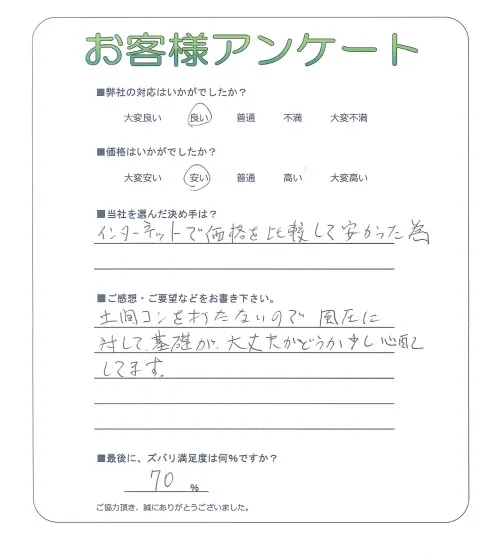 お客様アンケート
■弊社の対応はいかがでしたか？
大変良い 良い 普通 不満 大変不満
■価格はいかがでしたか？
大変安い 安い 普通 高い 大変高い
■当社を選んだ決め手は？
インターネットで価格を比較して安かった為
■ご感想・ご要望などをお書き下さい。
土間コンを打たないので 風圧に
対して、基礎が、大丈夫かどうか少し心配
してます。
■最後に、ズバリ満足度は何％ですか？
70 %
ご協力頂き、誠にありがとうございました。